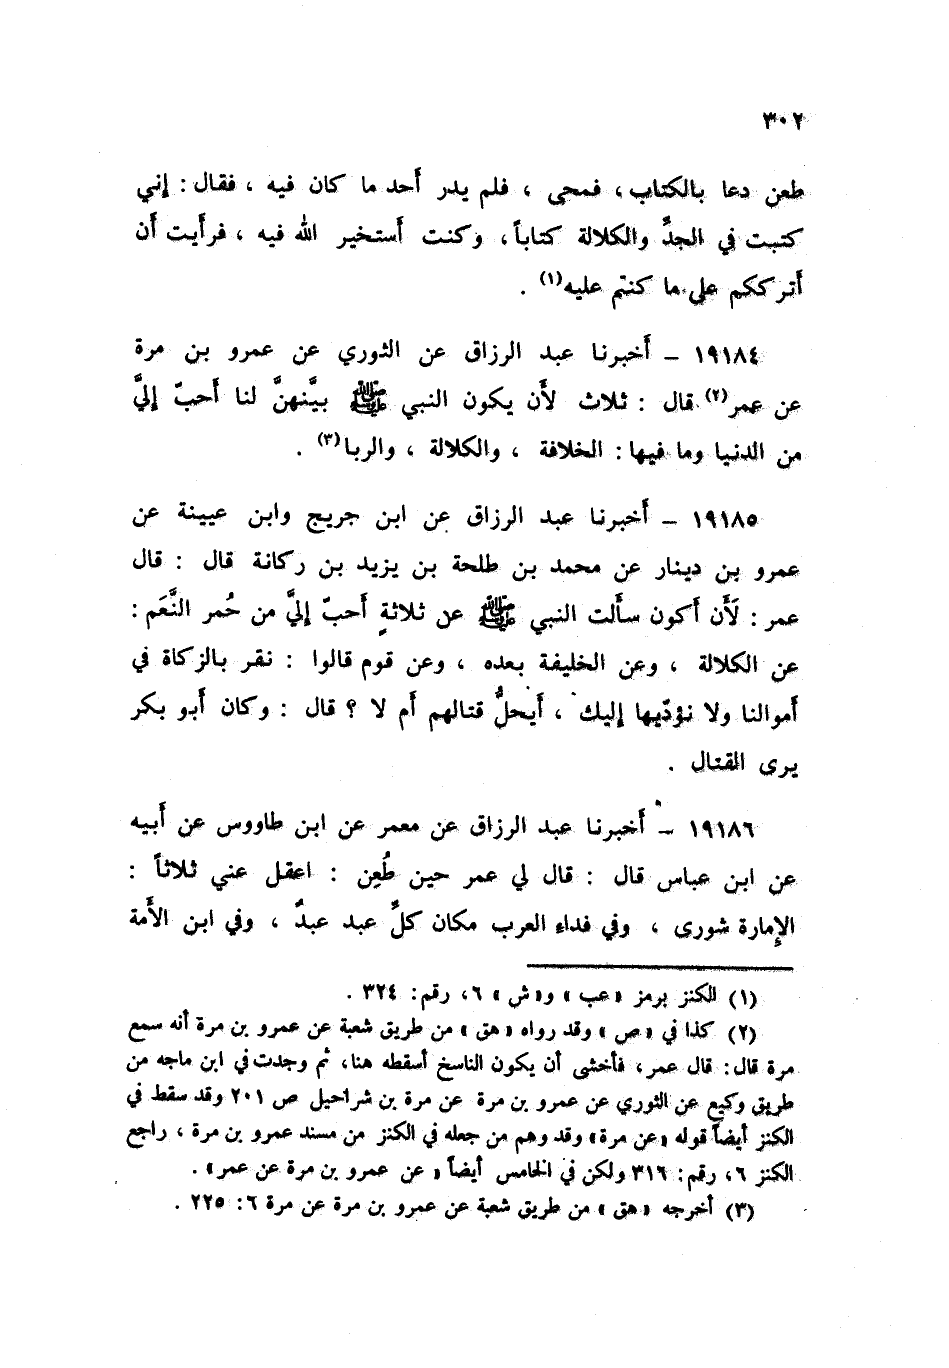 ٣٠٢
طعن دعا بالكتاب ، فمحى ، فلم يدر أحد ما كان فيه ، فقال : إني
كتبت في الجدِّ والكلالة كتاباً ، وكنت أستخير الله فيه ، فرأيت أن
أترككم على ما كنتم عليه(١) .
١٩١٨٤ – أخبرنا عبد الرزاق عن الثوري عن عمرو بن مرة
عن عمر(٢) قال : ثلاث لأَن يكون النبي ﷺ بيَّنهنَّ لنا أحبّ إليَّ
من الدنيا وما فيها : الخلافة ، والكلالة ، والربا(٣) .
١٩١٨٥ – أخبرنا عبد الرزاق عن ابن جريج وابن عيينة عن
عمرو بن دينار عن محمد بن طلحة بن يزيد بن ركانة قال : قال
عمر : لَأَن أكون سألت النبي ﷺ عن ثلاثةٍ أحبّ إليَّ من حُمر النَّعَم :
عن الكلالة ، وعن الخليفة بعده ، وعن قوم قالوا : نقر بالزكاة في
أموالنا ولا نؤدّيها إليك ، أيحلُّ قتالهم أم لا ؟ قال : وكان أبو بكر
يرى القتال .
١٩١٨٦ – أخبرنا عبد الرزاق عن معمر عن ابن طاووس عن أبيه
عن ابن عباس قال : قال لي عمر حين طُعِن : اعقل عني ثلاثاً :
الإمارة شورى ، وفي فداء العرب مكان كلِّ عبد عبدٌ ، وفي ابن الأَمة
(١) الكنز برمز « عب » و« ش » ٦، رقم: ٣٢٤ .
(٢) كذا في « ص » وقد رواه « هق » من طريق شعبة عن عمرو بن مرة أنه سمع
مرة قال: قال عمر ، فأخشى أن يكون الناسخ أسقطه هنا، ثم وجدت في ابن ماجه من
طريق وكيع عن الثوري عن عمرو بن مرة عن مرة بن شراحيل ص ٢٠١ وقد سقط في
الكنز أيضاً قوله «عن مرة» وقد وهم من جعله في الكنز من مسند عمرو بن مرة ، راجع
الكنز ٦، رقم: ٣١٦ ولكن في الخامس أيضاً « عن عمرو بن مرة عن عمر» .
(٣) أخرجه « هق » من طريق شعبة عن عمرو بن مرة عن مرة ٦: ٢٢٥ .